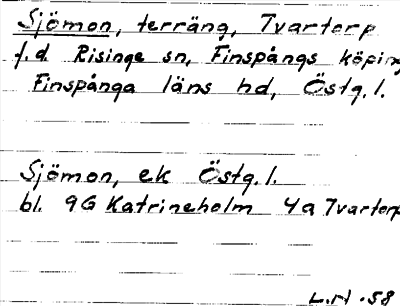 Sjömon, terräng, Tvartorp
f.d. Risinge sn, Finspångs köping
Finspånga läns hd, Östg.l.
Sjömon, ek Östg.l.
bl. 9G Katrineholm 4a Tvartorp
58